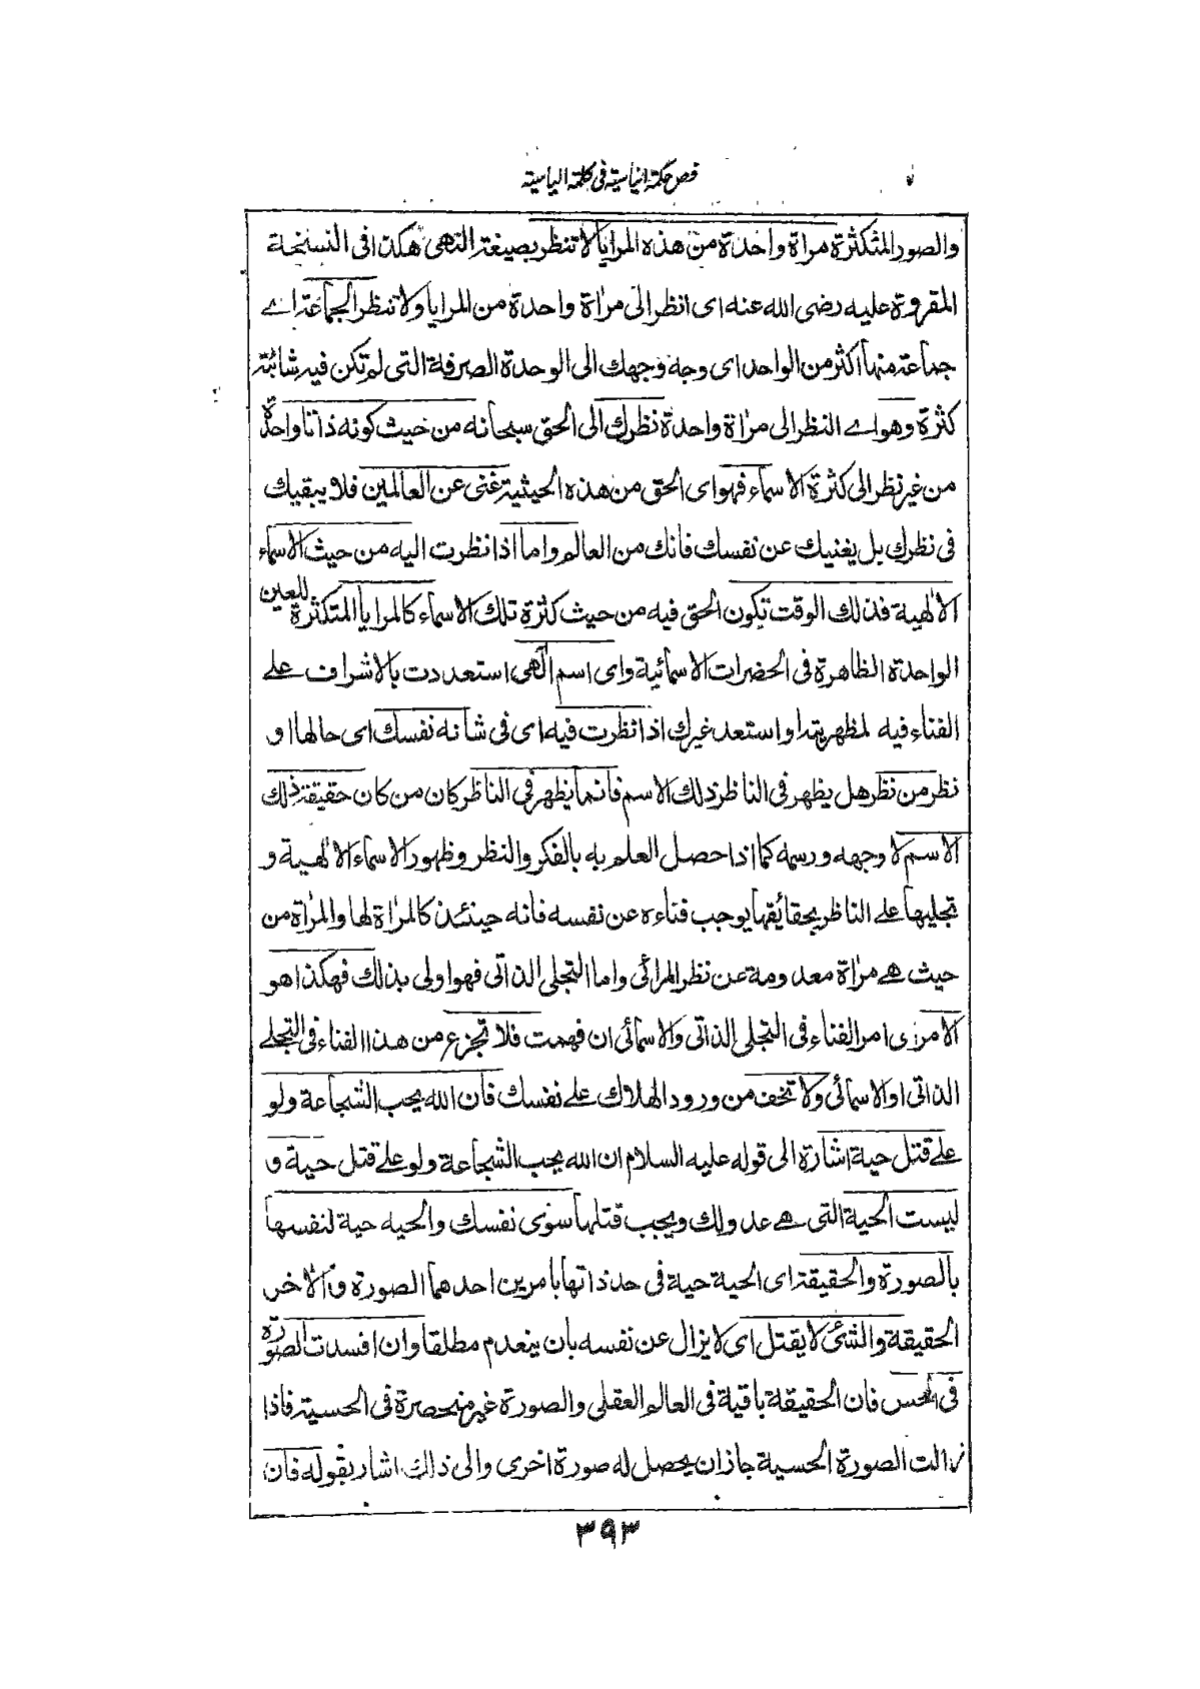 فص حكمة ايناسية فى كلمة الياسية
والصور المتكثرة مراة واحدة من هذه المرايا لا تنظر بصيغة النهى هكذا فى النسخة
المقروة عليه رضى الله عنه اى انظر الى مراة واحدة من المرايا ولا تنظر الجماعة اے
جماعة منها اكثر من الواحد اى وجه وجهك الى الوحدة الصرفة التى لم تكن فيه شائبة
كثرة وهو اے النظر الى مراة واحدة نظرك الى الحق سبحانه من حيث كونه ذاتا واحدة
من غير نظر الى كثرة الاسماء فهو اى الحق من هذه الحيثية غنى عن العالمين فلا يبقيك
فى نظرك بل يغنيك عن نفسك فانك من العالم واما اذا نظرت اليه من حيث الاسماء
الالهية فذلك الوقت تكون الحق فيه من حيث كثرة تلك الاسماء كالمرايا المتكثرة للعين
الواحدة الظاهرة فى الحضرات الاسمائية واى اسم الهى استعددت بالاشراف على
الفناء فيه لمظهريته او استعد غيرك اذا نظرت فيه اى فى شانه نفسك اى حالها او
نظر من نظر هل يظهر فى الناظر ذلك الاسم فانما يظهر فى الناظر كان من كان حقيقة ذلك
الاسم لا وجهه ورسمه كما اذا حصل العلم به بالفكر والنظر وظهور الاسماء الالهية و
تجليها على الناظر بحقائقها يوجب فناءه عن نفسه فانه حينئذ كالمراة لها والمراة من
حيث هے مراة معدومة عن نظر المرائى واما التجلى الذاتى فهو اولى بذلك فهكذا هو
الامر اى امر الفناء فى التجلى الذاتى والاسمائى ان فهمت فلا تجزع من هذا الفناء فى التجلے
الذاتى او الاسمائى ولا تخف من ورود الهلاك على نفسك فان الله يحب الشجاعة ولو
على قتل حية اشارة الى قوله عليه السلام ان الله يحب الشجاعة ولو على قتل حية و
ليست الحية التى هے عدو لك ويجب قتلها سوى نفسك والحيه حية لنفسها
بالصورة والحقيقة اى الحية حية فى حد ذاتها بامرين احدهما الصورة والاخر
الحقيقة والشئ لا يقتل اى لا يزال عن نفسه بان ينعدم مطلقا وان افسدت الصورة
فى الحس فان الحقيقة باقية فى العالم العقلى والصورة غير منحصرة فى الحسية فاذا
زالت الصورة الحسية جاز ان يحصل له صورة اخرى والى ذلك اشار بقوله فان
٣٩٣